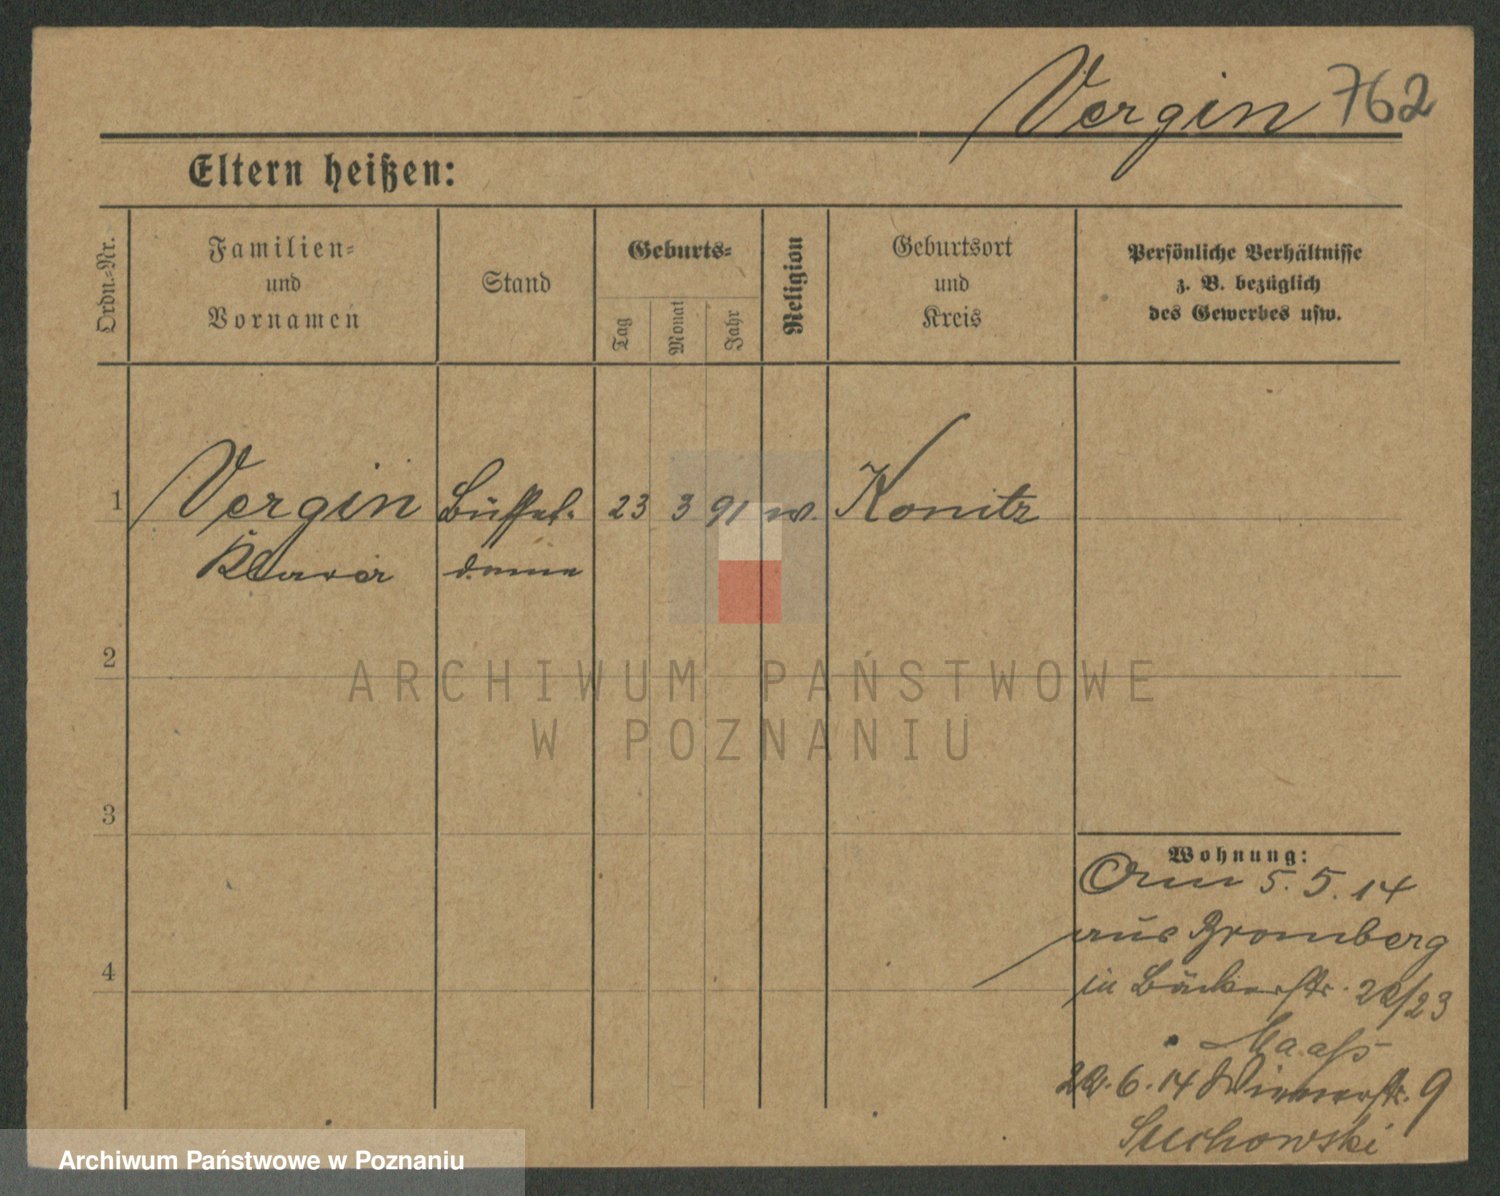 Vergin 762
Eltern heißen:
Ordn.-Nr.
Familien-
und
Vornamen
Stand
Geburts-
Tag
Monat
Jahr
Religion
Geburtsort
und
Kreis
Persönliche Verhältnisse
z. B. bezüglich
des Gewerbes usw.
1
Vergin
Büffet-
23 3 91
Konitz
Klara
dame
2
ARCHIWUM PAŃSTWOWE
W POZNANIU
3
4
Wohnung:
5.5.14
aus Bromberg
in Bäckerstr. 22/23
Maaß
22.6.14 Wienerstr. 9
Suchowski
Archiwum Państwowe w Poznaniu